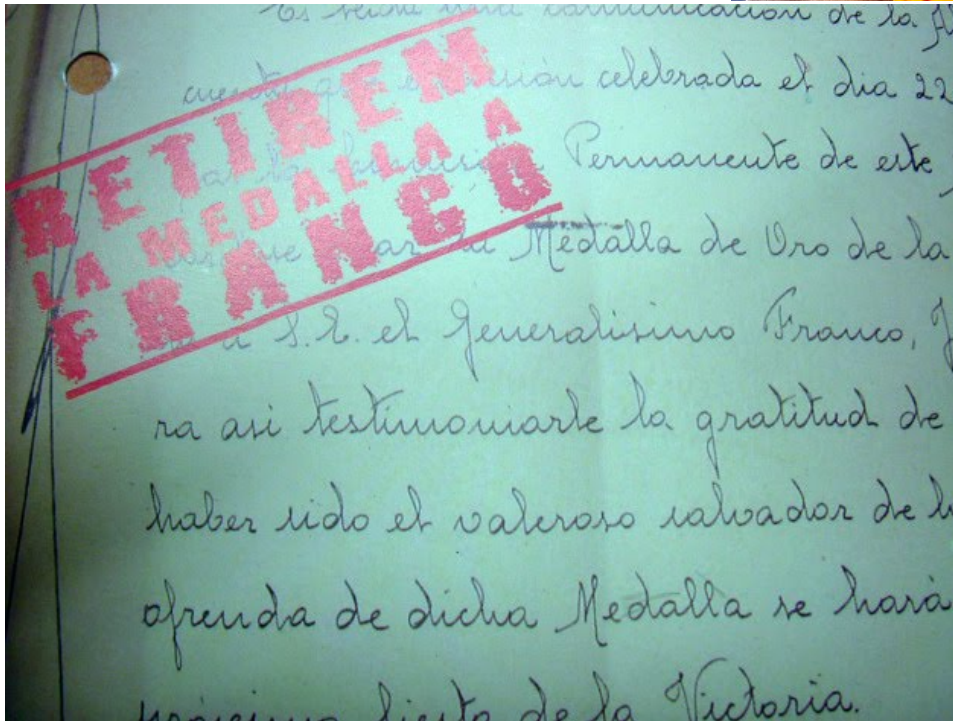 Es leida una comunicación de la
cuenta que en sesión celebrada el dia 22
Permanente de este
la Medalla de Oro de la
a S.E. el Generalisimo Franco,
ra asi testimoniarle la gratitud de
haber sido el valeroso salvador de
ofrenda de dicha Medalla se hará
próxima fiesta de la Victoria.
RETIREM
LA MEDALLA A
FRANCO